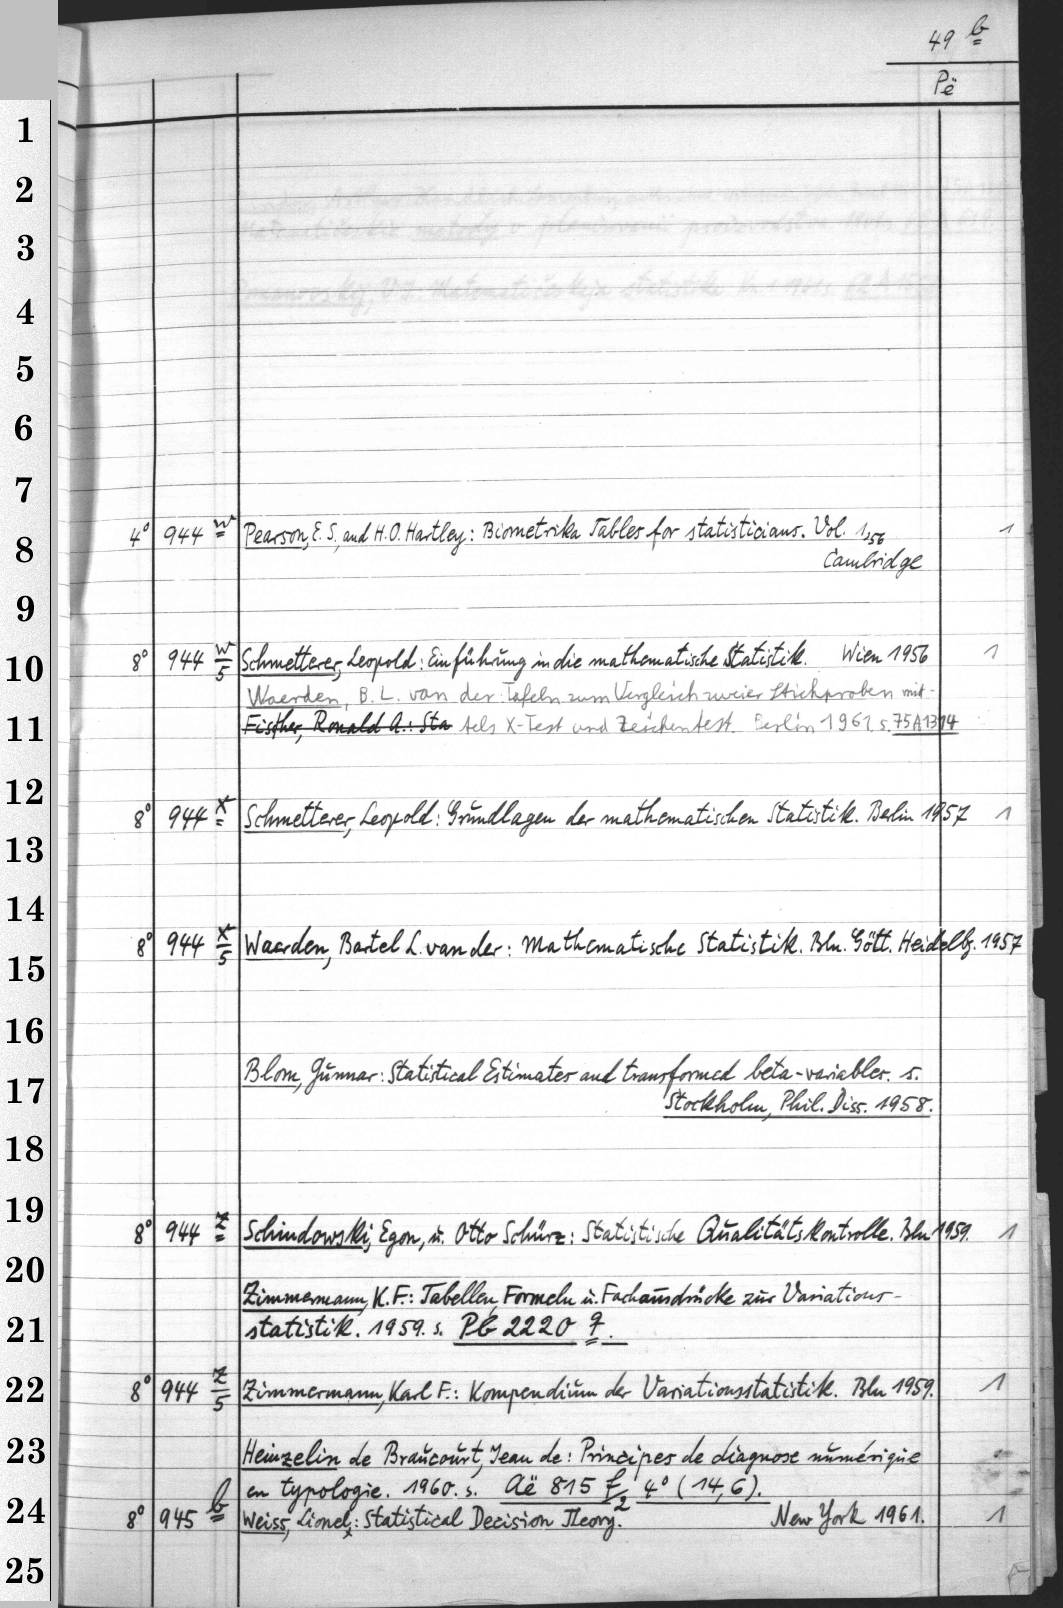 49 b
Pë
1
2
3
4
5
6
7
4° 944 w Pearson, E. S., and H. O. Hartley: Biometrika Tables for statisticians. Vol. 1, 56 1
8
Cambridge
9
10
8° 944 w/5 Schmetterer, Leopold: Einführung in die mathematische Statistik. Wien 1956 1
Waerden, B. L. van der: Tafeln zum Vergleich zweier Stichproben mit-
11
Fisther, Ronald A.: Sta tels X-Test und Zeichentest. Berlin 1961 s. 75 A 1314
12
8° 944 x Schmetterer, Leopold: Grundlagen der mathematischen Statistik. Berlin 1957 1
13
14
8° 944 x/5 Waerden, Bartel L. van der: Mathematische Statistik. Bln. Gött. Heidelbg. 1957
15
16
Blom, Gunnar: Statistical Estimates and transformed beta-variables. s.
17
Stockholm, Phil. Diss. 1958.
18
19
8° 944 z Schindowski, Egon, u. Otto Schürz: Statistische Qualitätskontrolle. Bln 1959. 1
20
Zimmermann, K. F.: Tabellen, Formeln u. Fachausdrücke zur Variations-
21
statistik. 1959. s. Pb 2220 q.
22
8° 944 z/5 Zimmermann, Karl F.: Kompendium der Variationsstatistik. Bln 1959. 1
23
Heinzelin de Braucourt, Jean de: Principes de diagnose numérique
en typologie. 1960. s. Aë 815 f/2 4° (14,6).
24
8° 945 b Weiss, Lionel: Statistical Decision Theory. New York 1961. 1
25